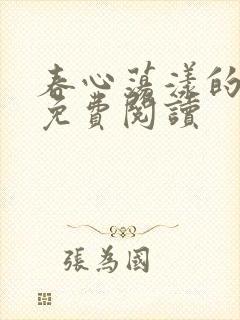 春心蕩漾的
免費閱讀
張為國